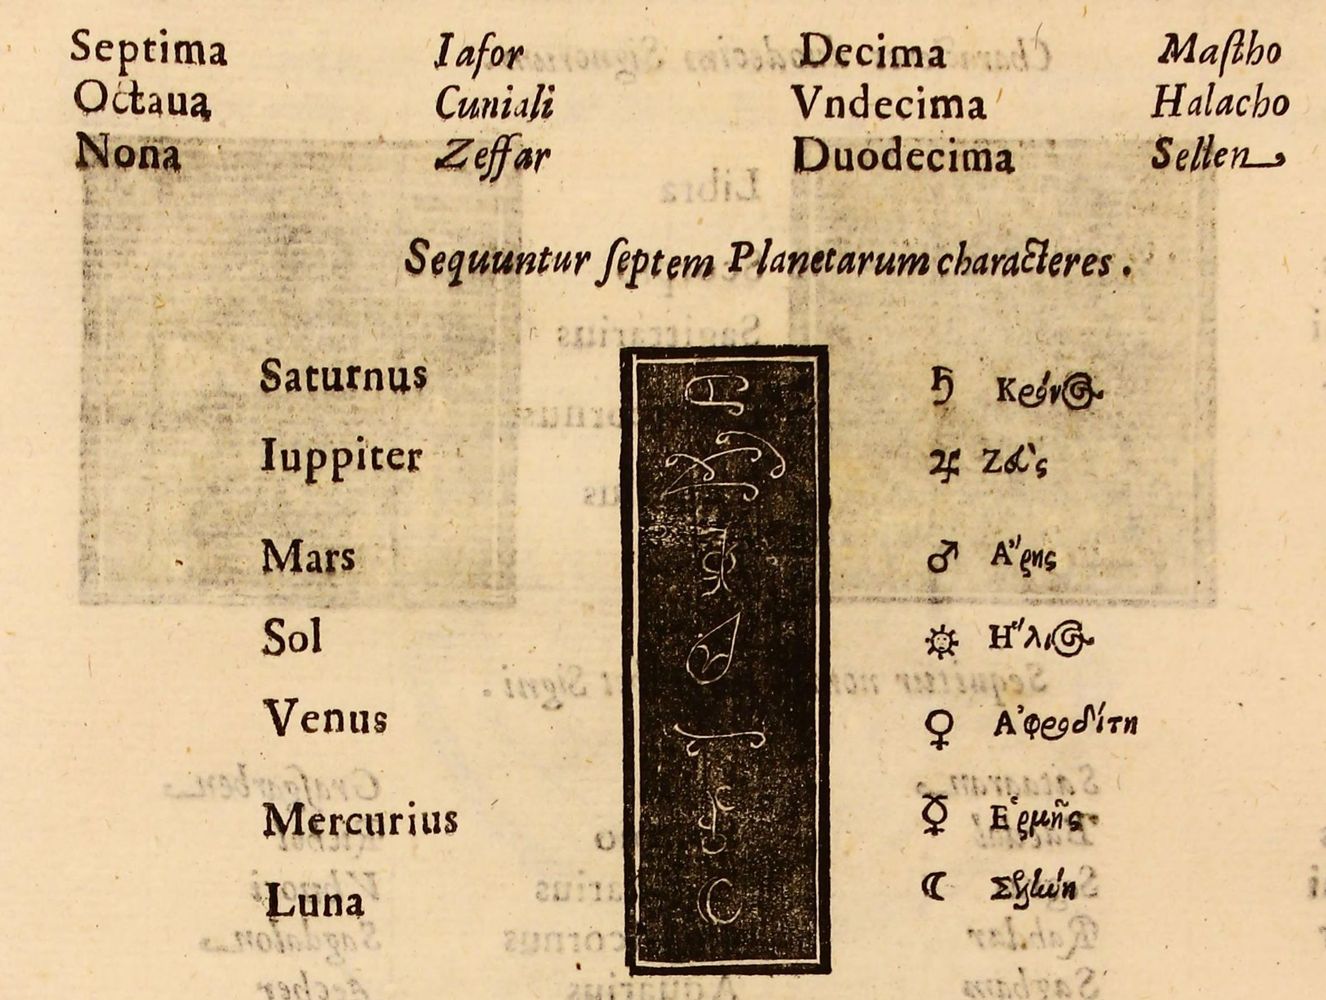 Septima Iafor Decima Maſtho
Octaua Cuniali Vndecima Halacho
Nona Zeffar Duodecima Sellen
Sequuntur ſeptem Planetarum characteres.
Saturnus ♄ Κρόνος
Iuppiter ♃ Ζεὺς
Mars ♂ Α῎ρης
Sol ☼ Η῞λιος
Venus ♀ Α᾿φροδίτη
Mercurius ☿ Ε῾ρμῆς
Luna ☾ Σελήνη